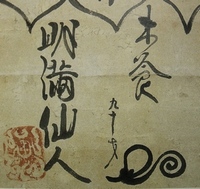 木食
九十才
明満仙人